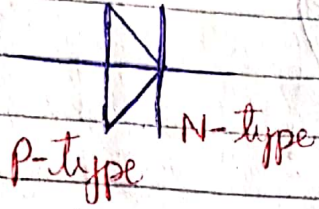 N-type
P-type